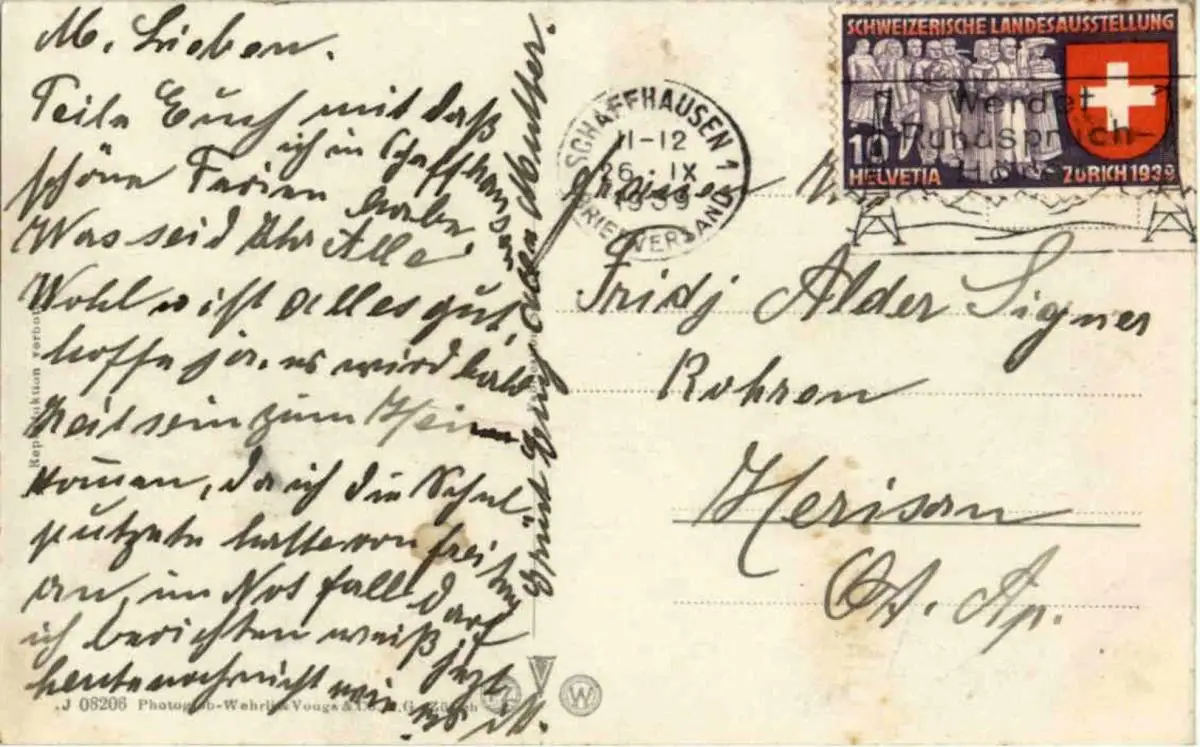 M. Lieben.
Teile Euch mit daß
ich in Schaffhausen
schöne Ferien habe.
Was seid Ihr Alle
Wohl u ist alles gut,
hoffe ja. es wird bald
Zeit sein zum Heim
kommen, da ich die Schul
putzete hatte von freitag
an, im Not fall darf
ich berichten weiß jezt
heute noch nicht wie es ist.
Grüßt Euch allen Mutter.
SCHAFFHAUSEN 1
11-12
26. IX
1939
BRIEFVERSAND
SCHWEIZERISCHE LANDESAUSSTELLUNG
10
HELVETIA
ZÜRICH 1939
Werdet
Rundspruch-
Fridj Alder Signer
Rohren
Herisau
Ct. Ap.
Reproduktion verboten
J 08206 Photoglob-Wehrli & Vouga & Co. A.G. Zürich
W